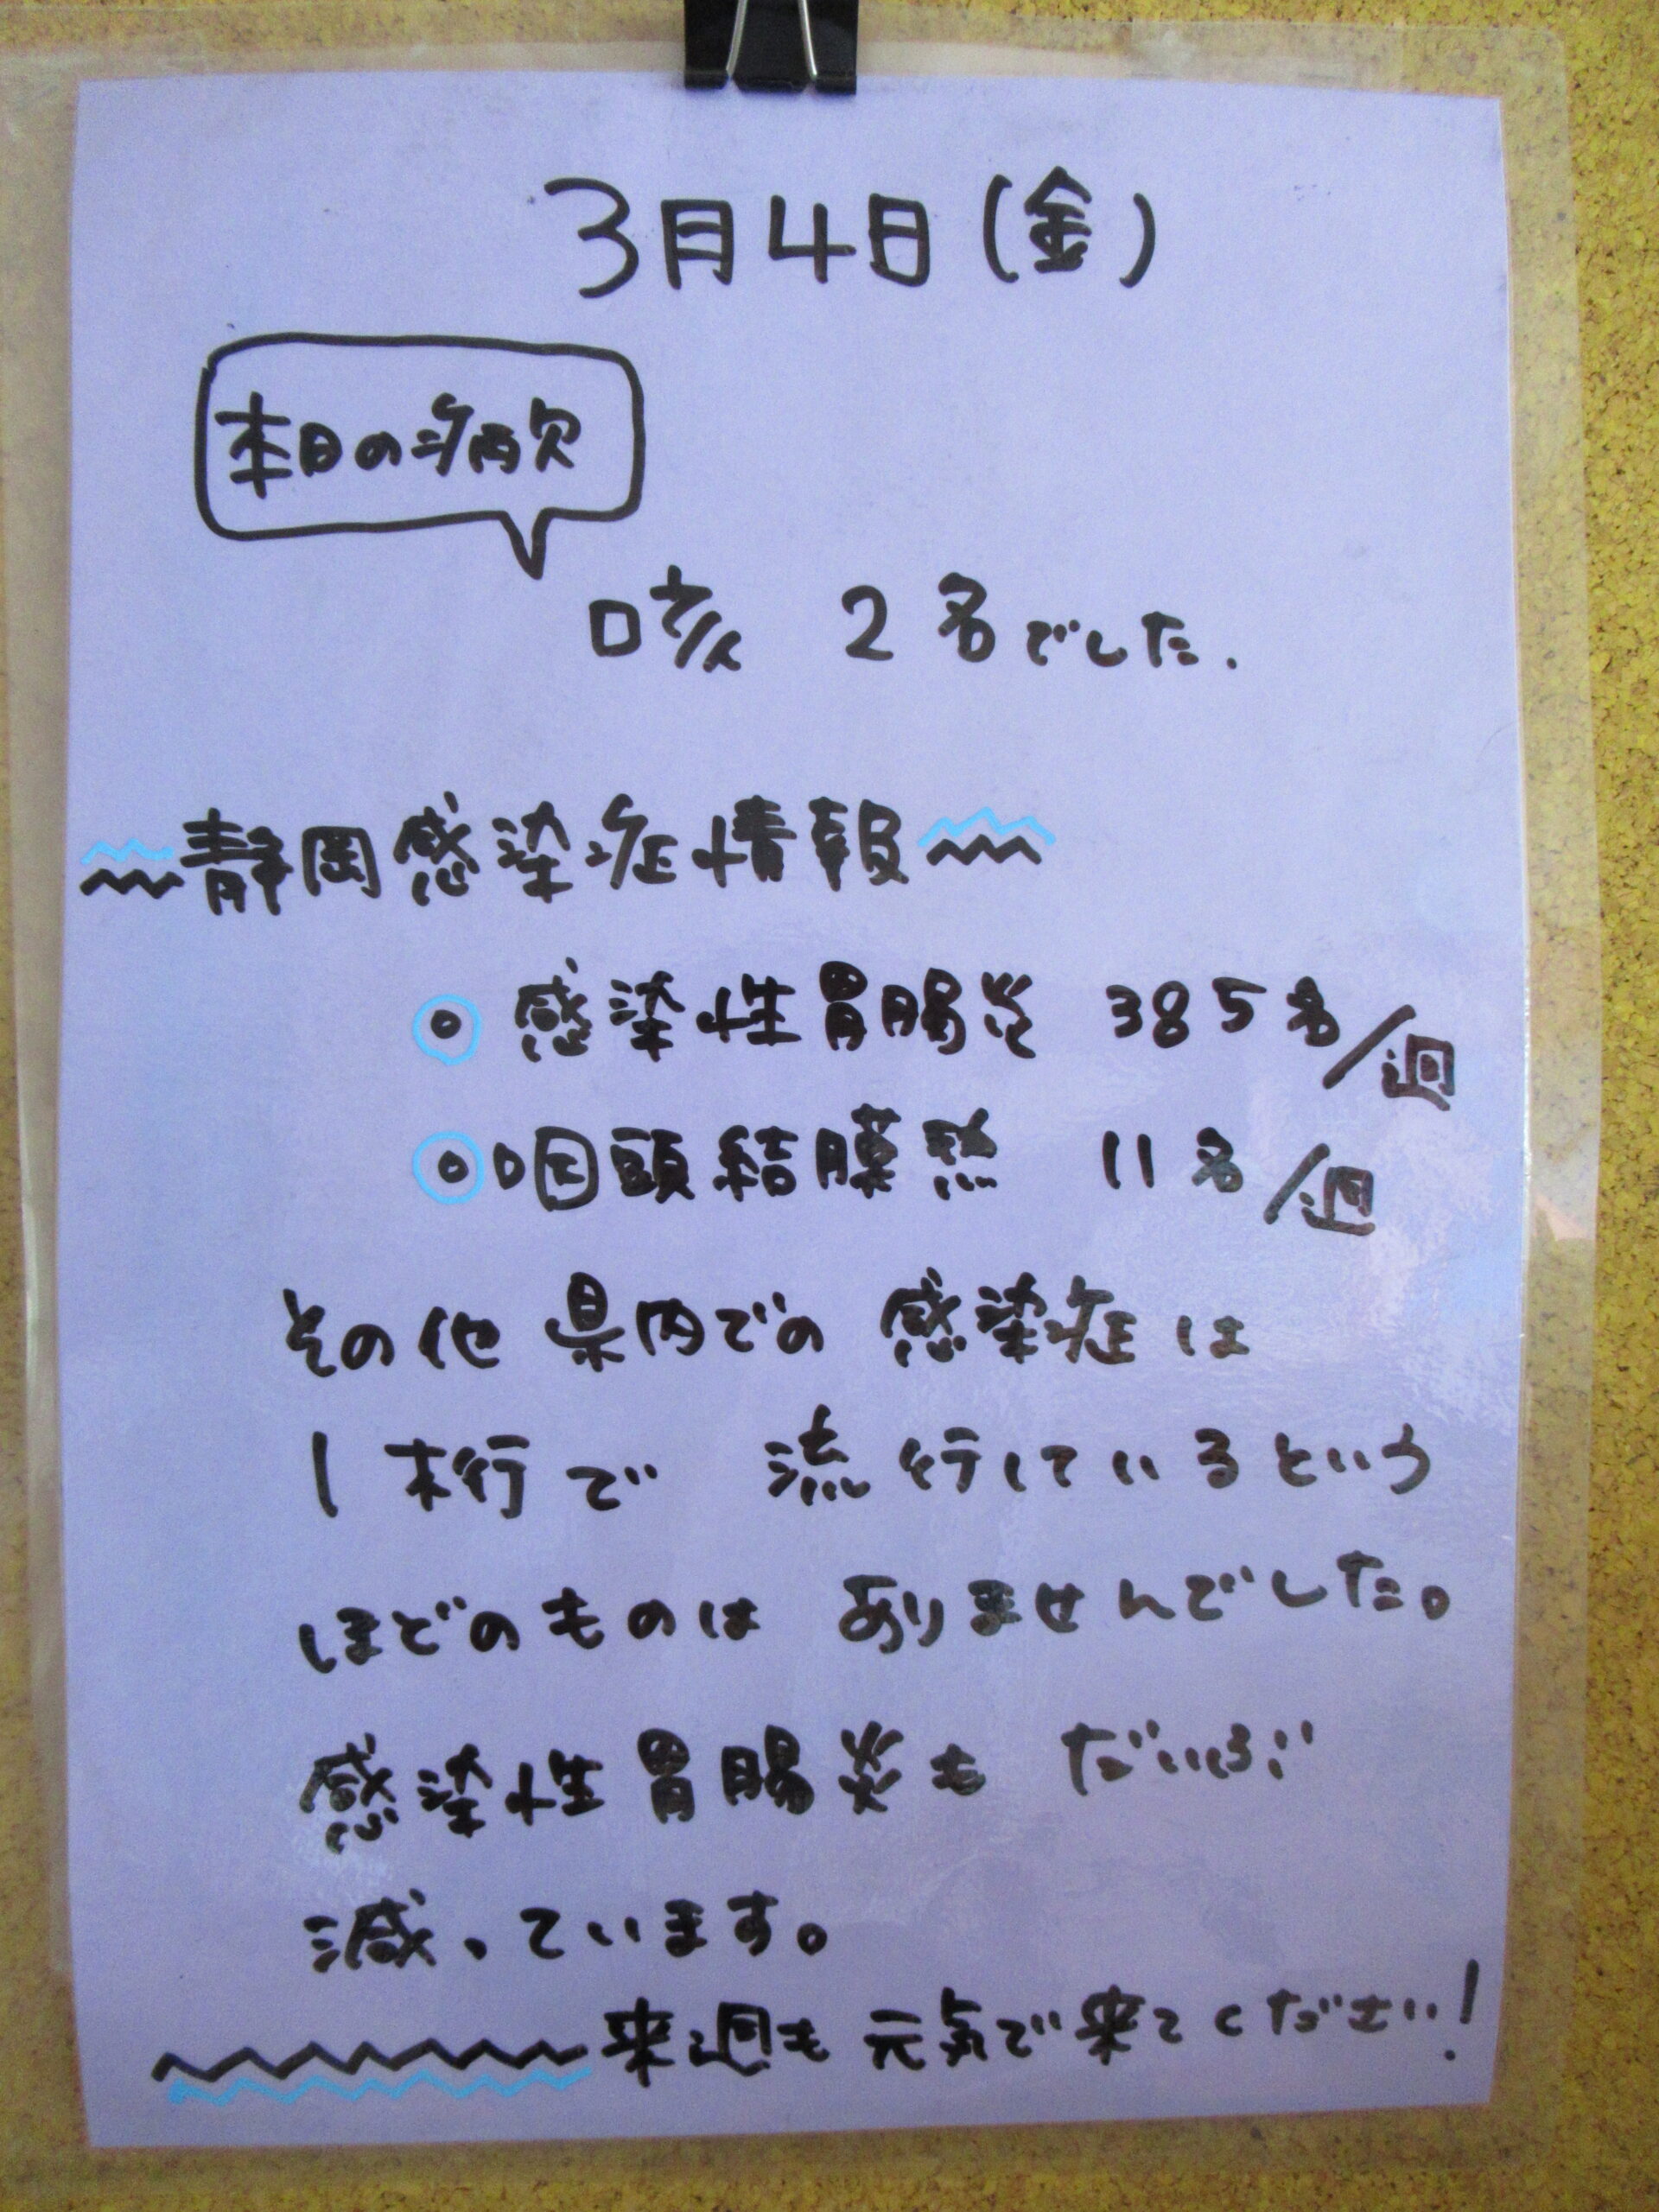 3月4日(金)
本日の病欠
咳 2名でした.
静岡感染症情報
◎感染性胃腸炎 385名/週
◎咽頭結膜熱 11名/週
その他 県内での 感染症は
1桁で 流行しているという
ほどのものは ありませんでした。
感染性胃腸炎も だいぶ
減っています。
来週も 元気で来てください!